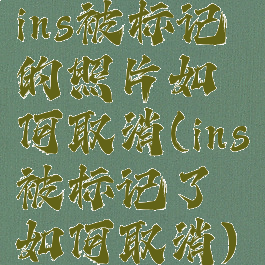 ins被标记
的照片如
何取消(ins
被标记了
如何取消)